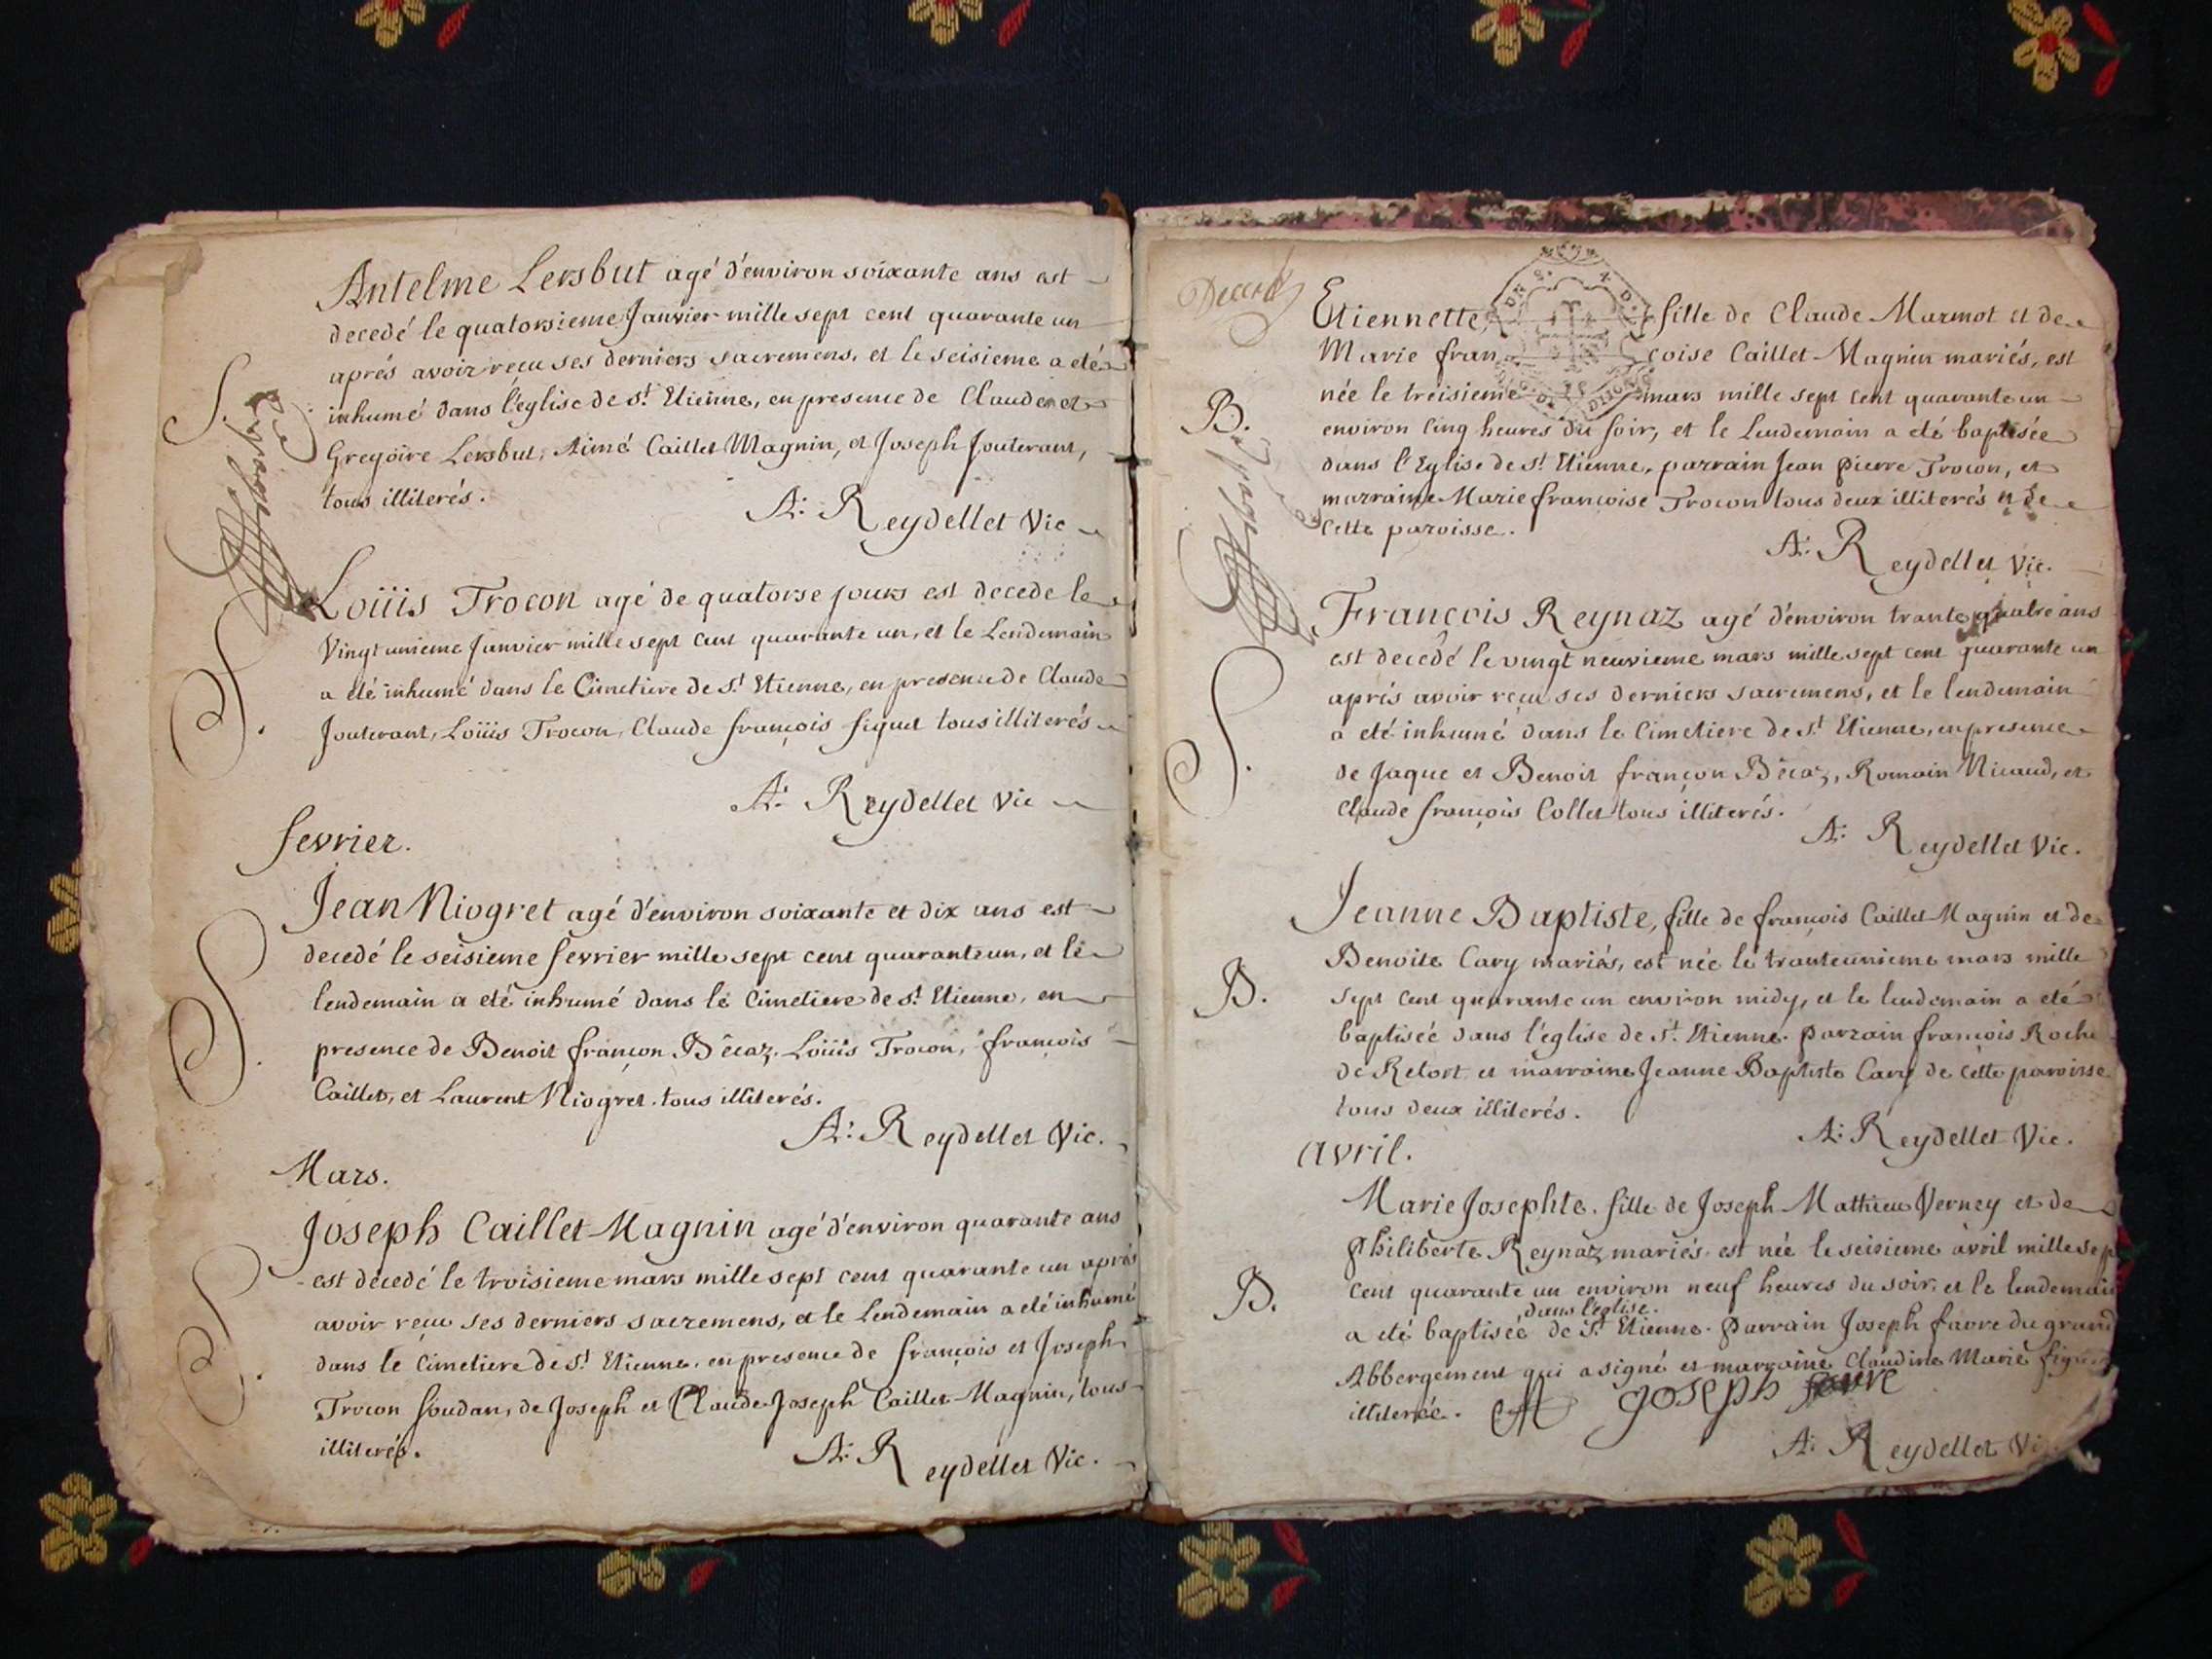 Antelme Lersbut agé d'environ soixante ans est
decedé le quatorsieme Janvier mille sept cent quarante un
aprés avoir reçu ses derniers sacremens, et le seisieme a eté
S.
inhumé dans l'eglise de st. Etienne, en presence de Claude et
Gregoire Lersbut, Aimé Caillet Magnin, et Joseph Jouterant,
tous illiterés.
A: Reydellet Vic
Loüis Trocon agé de quatorse jours est decede le
Vingt unieme Janvier mille sept cent quarante un, et le Lendemain
S.
a eté inhumé dans le Cimetiere de st Etienne, en presence de Claude
Jouterant, Loüis Trocon, Claude françois figuet tous illiterés
A: Reydellet Vic
fevrier.
Jean Niogret agé d'environ soixante et dix ans est
decedé le seisieme fevrier mille sept cent quarante un, et le
S.
lendemain a eté inhumé dans le Cimetiere de st. Etienne, en
presence de Benoit françon Bêcaz. Loüis Trocon, françois
Caillet, et Laurent Niogret. tous illiterés.
A: Reydellet Vic.
Mars.
Joseph Caillet-Magnin agé d'environ quarante ans
est décedé le troisieme mars mille sept cent quarante un aprés
S.
avoir reçu ses derniers sacremens, et le Lendemain a eté inhumé
dans le Cimetiere de st Etienne. en presence de françois et Joseph
Trocon soudan, de Joseph et Claude Joseph Caillet-Magnin, tous
illiterés.
A: Reydellet Vic.
Etiennette, fille de Claude Marmot et de
Marie françoise Caillet-Magnin mariés, est
B.
née le treisieme mars mille sept cent quarante un
environ cinq heures du soir, et le Lendemain a eté baptisée
dans l'Eglise de st Etienne, parrain Jean pierre Trocon, et
marraine Marie françoise Trocon tous deux illiterés de
Cette paroisse.
A: Reydellet Vic.
François Reynaz agé d'environ trante quatre ans
est decedé le vingt neuvieme mars mille sept cent quarante un
aprés avoir reçu ses derniers sacremens, et le lendemain
S.
a eté inhumé dans le Cimetiere de st Etienne, en presence
de Jaque et Benoit françon Bêcaz, Romain Nicaud, et
Claude françois Collet tous illiterés.
A: Reydellet Vic.
Jeanne Baptiste, fille de françois Caillet Magnin et de
Benoite Cary mariés, est née le tranteunieme mars mille
B.
sept cent quarante un environ midy, et le lendemain a eté
baptisée dans l'église de st. Etienne. parrain françois Roche
de Retort et marraine Jeanne Baptiste Cary de cette paroisse
tous deux illiterés.
A: Reydellet Vic.
avril.
Marie Josephte. fille de Joseph Mathieu Verney et de
philiberte Reynaz mariés. est née le seisieme avril mille sep
B.
cent quarante un environ neuf heures du soir, et le lendemain
dans l'eglise.
a eté baptisée de st Etienne. parrain Joseph favre du grand
Abbergement qui a signé et marraine Claudine Marie
illiterée.
Joseph favre
A: Reydellet